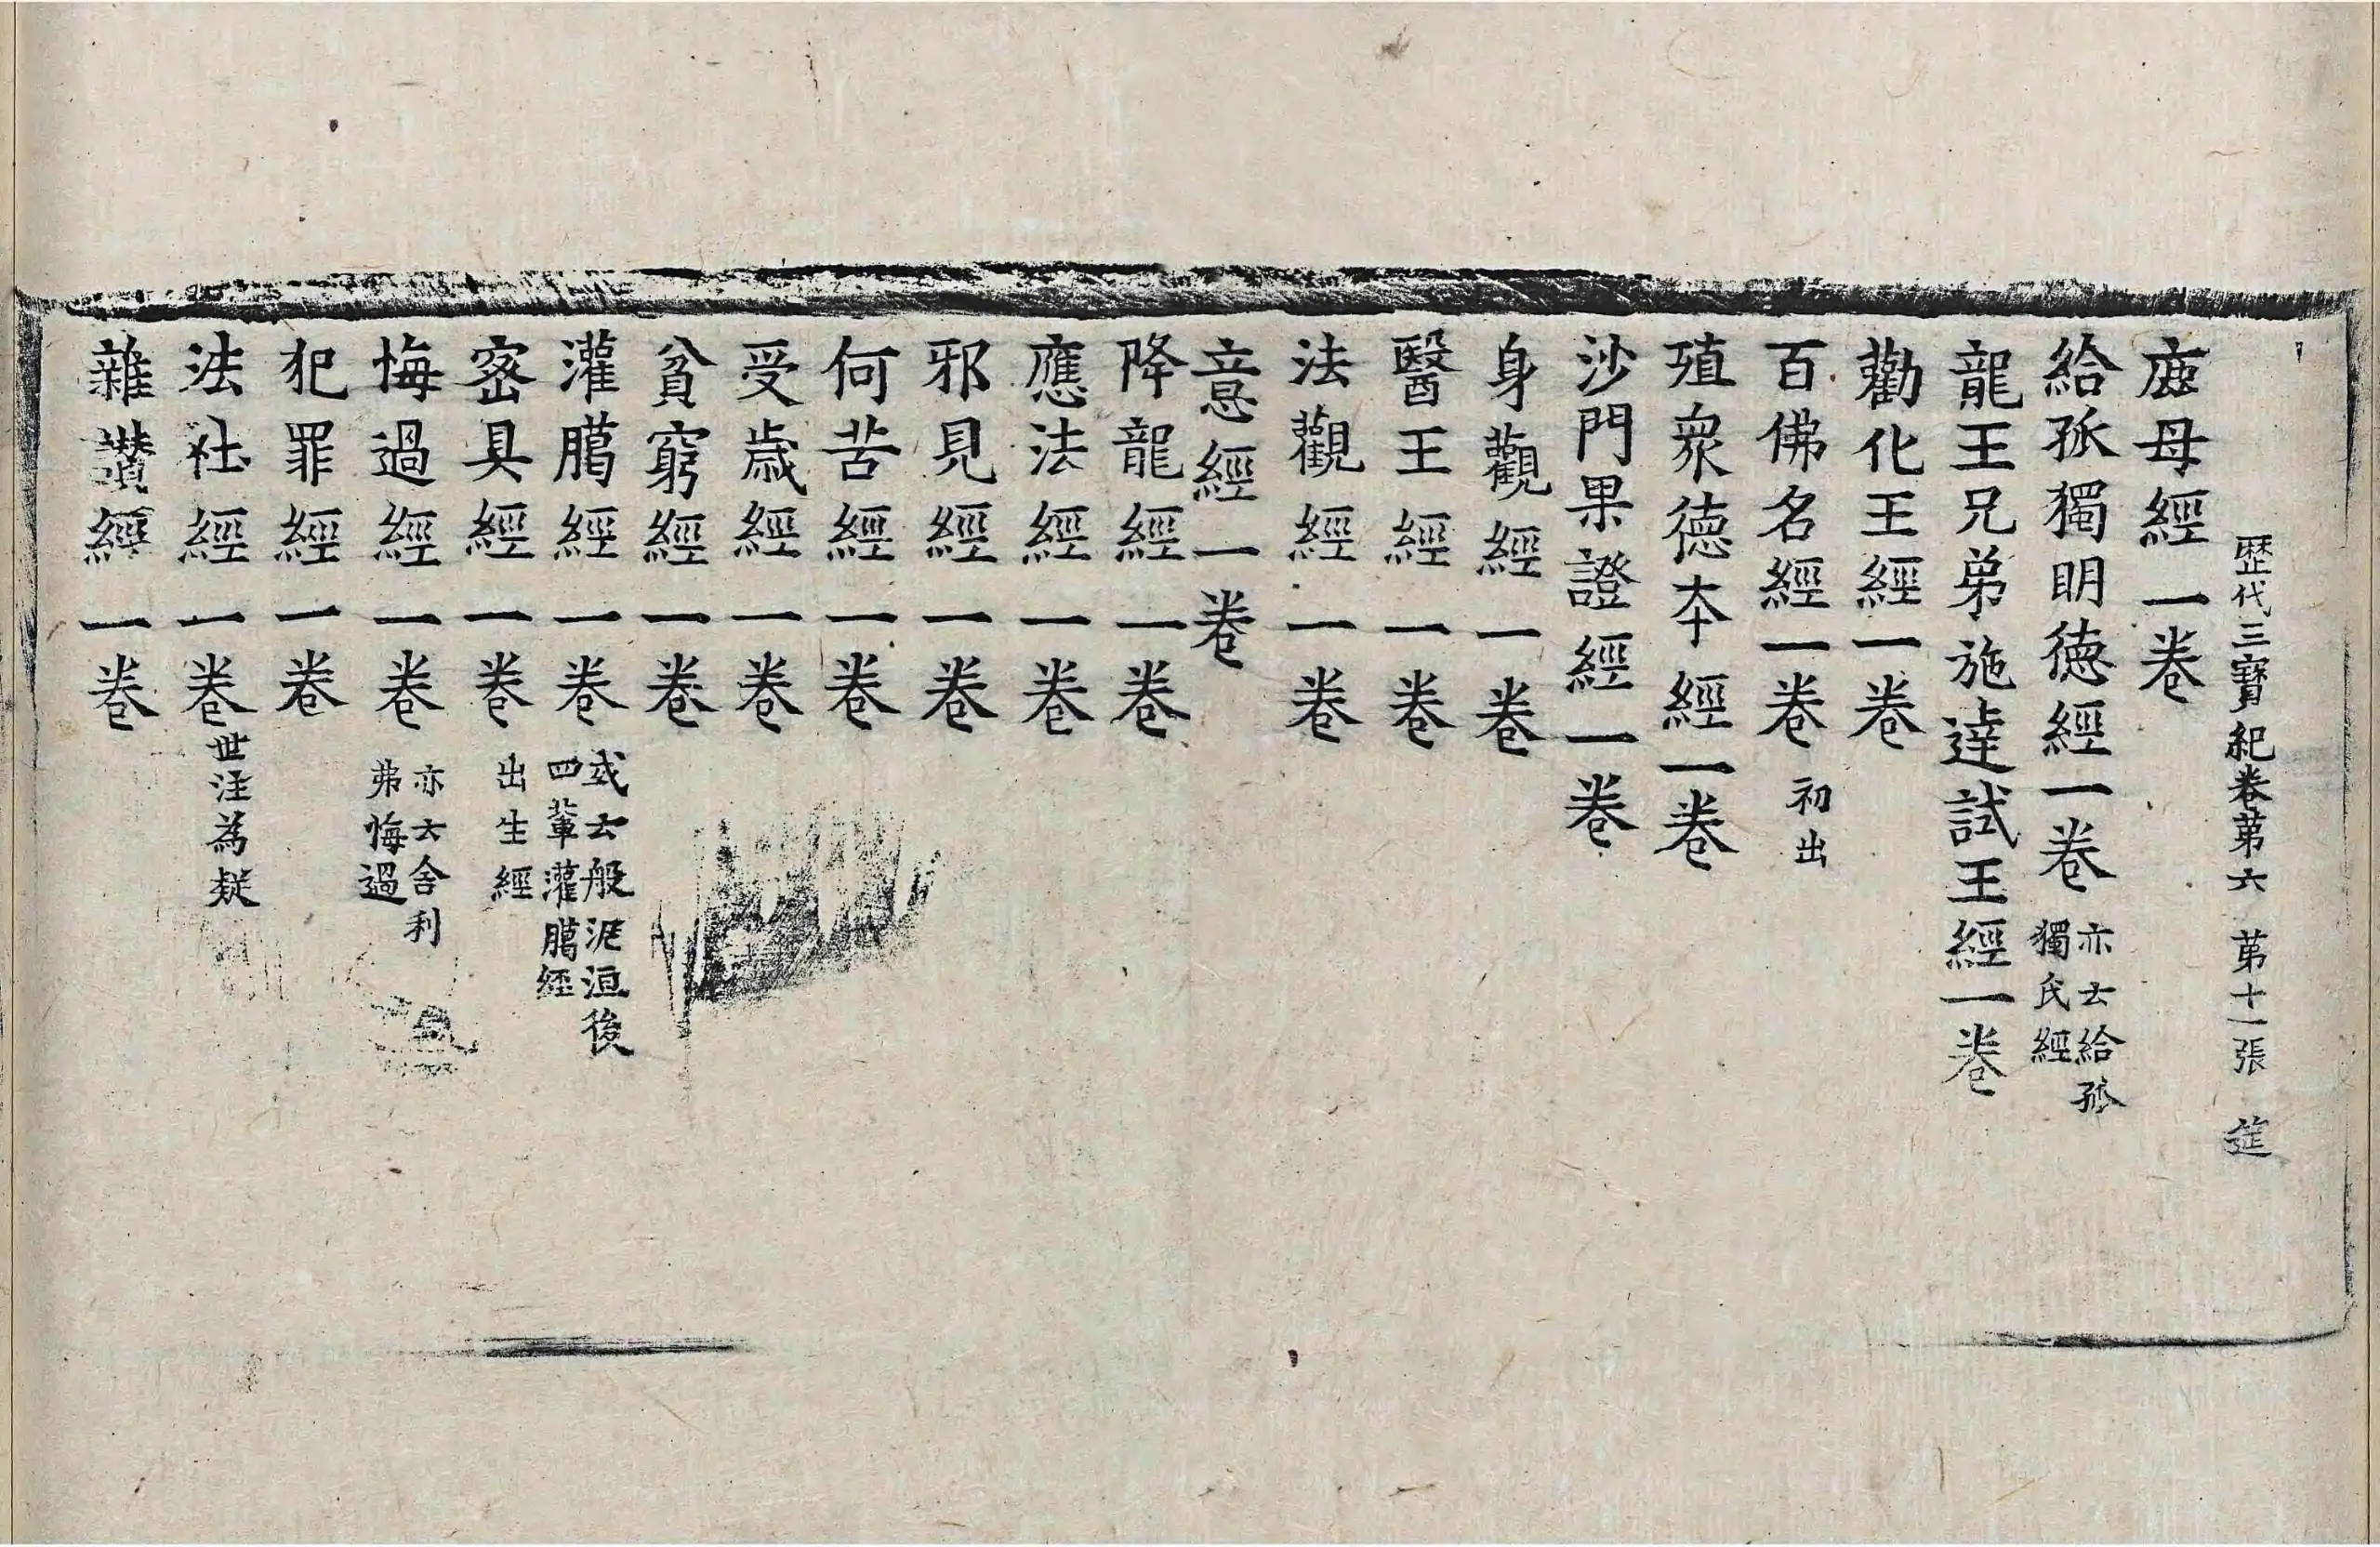 歷代三寶紀卷苐六　苐十一張　筵
鹿母經一卷
給孤獨明德經一卷 亦云給孤獨氏經
龍王兄弟施達試王經一卷
勸化王經一卷
百佛名經一卷 初出
殖衆德夲經一卷
沙門果證經一卷
身觀經一卷
醫王經一卷
法觀經一卷
意經一卷
降龍經一卷
應法經一卷
邪見經一卷
何苦經一卷
受歲經一卷
貧窮經一卷
灌臈經一卷 或云般泥洹後四輩灌臈經
宻具經一卷 出生經
悔過經一卷 亦云舍利弗悔過
犯罪經一卷
法社經一卷 世注為疑
雜讚經一卷